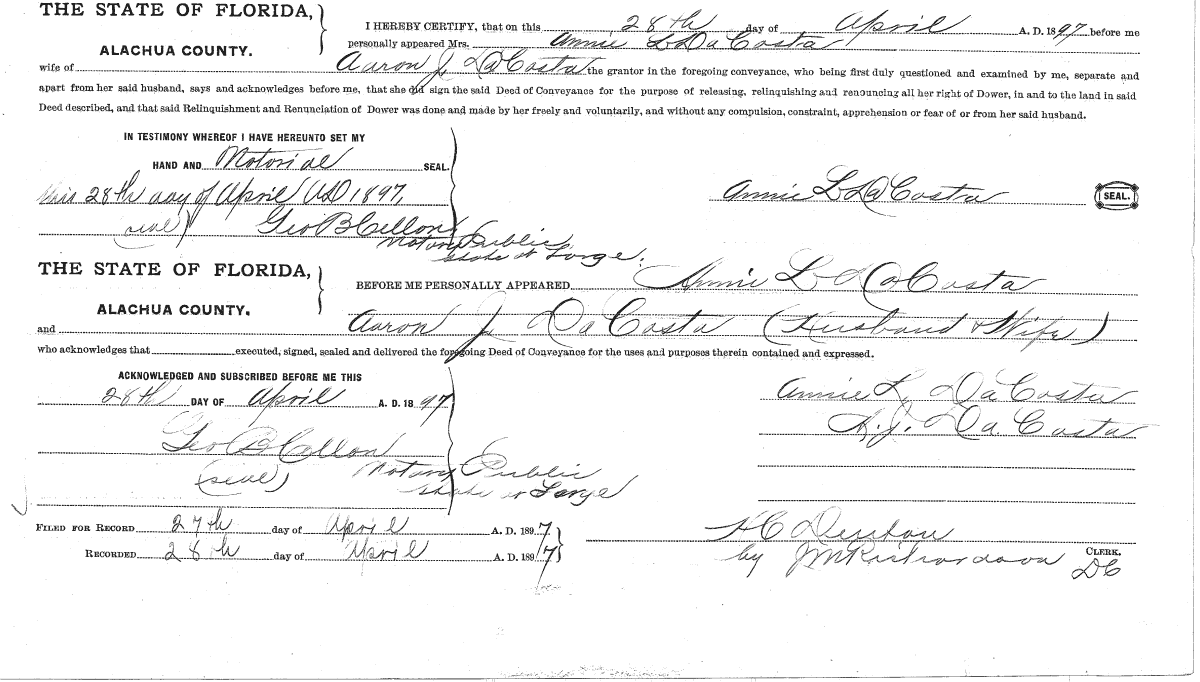 THE STATE OF FLORIDA,
ALACHUA COUNTY.
I HEREBY CERTIFY, that on this 28th day of April A. D. 1897 before me
personally appeared Mrs. Annie L DaCosta
wife of Aaron J. DaCosta the grantor in the foregoing conveyance, who being first duly questioned and examined by me, separate and
apart from her said husband, says and acknowledges before me, that she did sign the said Deed of Conveyance for the purpose of releasing, relinquishing and renouncing all her right of Dower, in and to the land in said
Deed described, and that said Relinquishment and Renunciation of Dower was done and made by her freely and voluntarily, and without any compulsion, constraint, apprehension or fear of or from her said husband.
IN TESTIMONY WHEREOF I HAVE HEREUNTO SET MY
HAND AND Notorial SEAL.
this 28th day of April AD 1897,
Annie L DaCosta SEAL.
(seal) Geo B Cellon
Notary Public
State at Large.
THE STATE OF FLORIDA,
ALACHUA COUNTY.
BEFORE ME PERSONALLY APPEARED Annie L DaCosta
and Aaron J. DaCosta (Husband & Wife)
who acknowledges that executed, signed, sealed and delivered the foregoing Deed of Conveyance for the uses and purposes therein contained and expressed.
ACKNOWLEDGED AND SUBSCRIBED BEFORE ME THIS
28th DAY OF April A. D. 1897
Annie L. DaCosta
A. J. DaCosta
Geo B Cellon
(seal) Notary Public
State at Large
FILED FOR RECORD 27th day of April A. D. 1897
RECORDED 28th day of April A. D. 1897
H C Denton
CLERK.
by J M Richardson DC